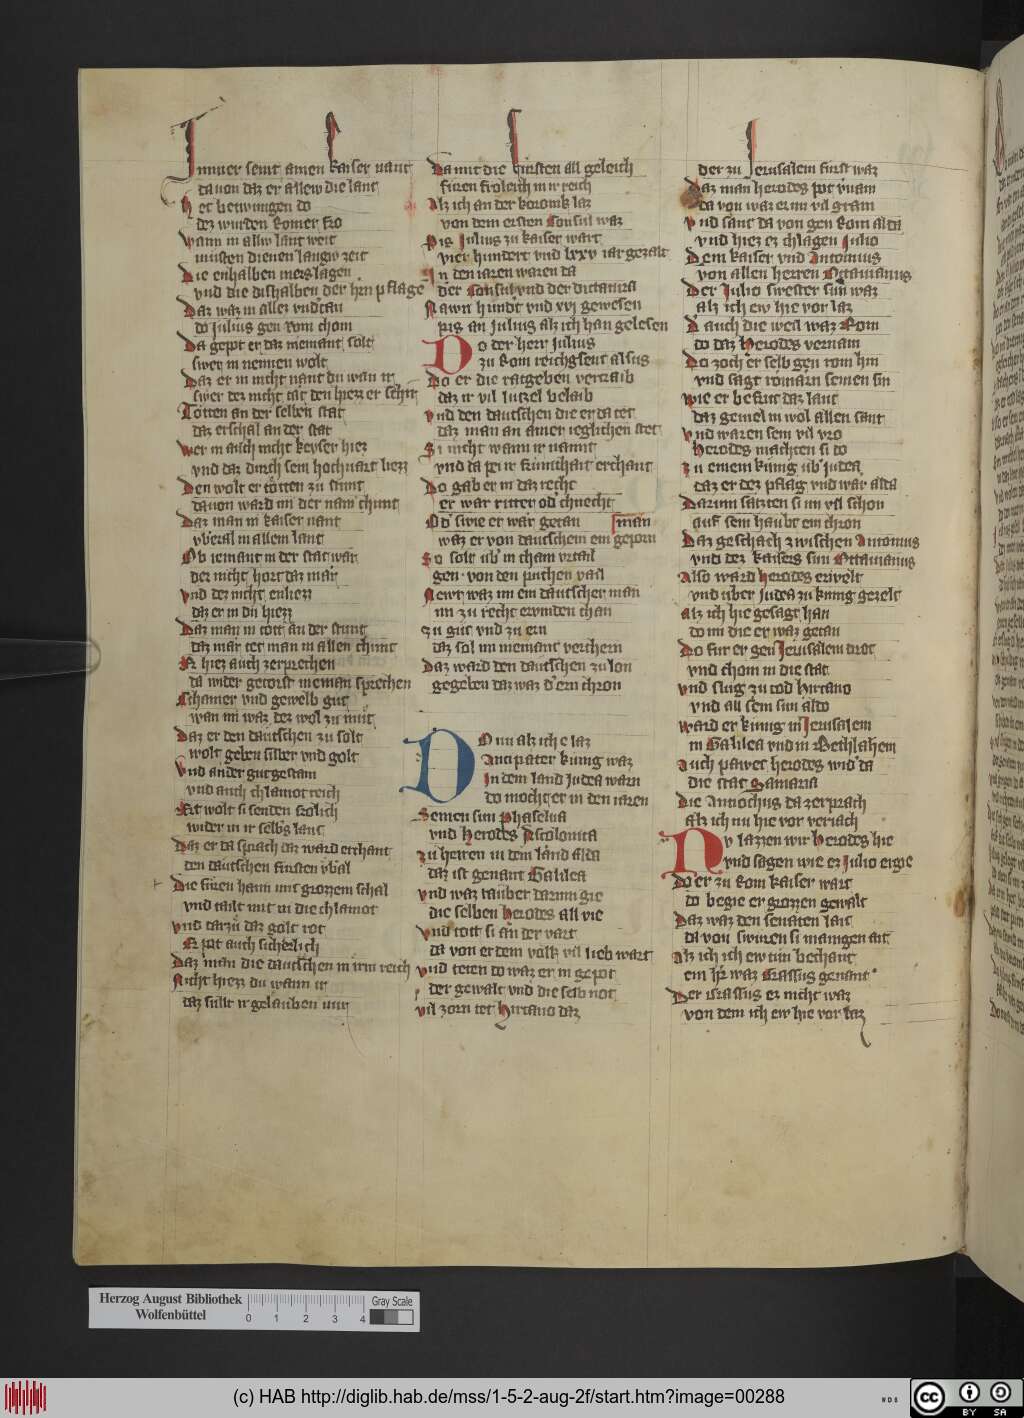 Immer seint ainen kaiser nant
da von daz er allew die lant
Het betwungen do
dez wurden Romer fro
Wann in allw lant weit
musten dienen langw zeit
Die enhalben mers lagen
vnd die dishalben der hrn pflage
Daz waz in allez vndtan
do Julius gen Rom chom
Da gepot er daz niemant solt
swer in nennen wolt
Daz er in nicht nant du wan ir
swer dez nicht tät den hiezz er schir
Tötten an der selben stat
daz erschal an der stat
Wer in auch nicht keyser hiez
vnd daz durch sein hochuart liezz
Den wolt er tötten zu stunt
dauon ward im der nam chunt
Daz man in kaiser nant
vberal in allem lant
Ob iemant in der stat war
der nicht hort daz mär
Vnd der nicht enliezz
daz er in du hiezz
Daz man in tott an der stunt
daz mär tet man in allen chunt
Er hiez auch zerprechen
da wider getorst nieman sprechen
Schamer vnd gewelb gut
wan im waz dez wol zu mut
Daz er den dautschen zu solt
wolt geben silber vnd golt
Vnd ander gut gestain
vnd auch chlainot reich
Er wolt si senden frölich
wider in ir selbs lant
Daz er da sprach daz ward erchant
den dautschen fürsten vbal
Die füren haim mit grozzem schal
vnd tailt mit in die chlainot
vnd darzü daz golt rot
Er pat auch sicherlich
Daz man die dautschen in irm reich
Nicht hiezz du wann ir
daz sullt ir gelauben mir
Da mit die fürsten all geleich
füren frölich in ir reich
Alz ich an der koronik laz
von dem ersten Consul waz
Pis Julius zu kaiser wart
vier hundert vnd lxxv iar gezalt
In den iaren waren da
der Consul vnd der dictatura
Nawn hundt vnd xvj gewesen
pis an Julius alz ich han gelesen
Do der herr Julius
zu Rom reichsent alsus
Do er die ratgeben vertraib
daz ir vil lutzel belaib
Vnd den dautschen die er da tet
daz man an ainer ieglichen stet
Si nicht wann ir nannt
vnd da pei ir frümchait erchant
Do gab er in daz recht
er war ritter od chnecht
Od swie er wär getan
man
waz er von dautschem ein geporn
So solt üb in cham vrtail
gen von den puchen vail
Newr waz im ein dautscher man
im zu recht ervinden chan
Zu gut vnd zu ern
daz sol im niemant verchern
Daz ward den dautschen zu lon
gegeben daz waz d ern chron
Do nu alz ich e laz
Antipater kunig waz
In dem land Judea warn
do mocht er in den iaren
Seinen sun Phaselua
vnd Herodes Ascolonita
Zu herren in dem land alda
daz ist genant Galilea
Vnd waz rauber darinn gie
die selben Herodes all vie
Vnd tott si an der vart
da von er dem volk vil lieb wart
Vnd teten do waz er in gepot
der gewalt vnd die selb not
vil zorn tet Hircano daz
der zu Jerusalem fürst waz
Daz man herodes pot vnam
da von waz er im vil gram
Vnd sant da von gen Rom alda
vnd hiez ez chlagen Julio
Dem kaiser vnd Antonius
von allen herren Ottauianus
Der Julio swester sun waz
alz ich ew hie vor laz
D auch die weil waz Rom
do daz Herodes vernam
Do zoch er selb gen rom hin
vnd sagt romärn seinen sin
Wie er besint daz lant
daz geniel in wol allen sant
Vnd waren sein vil vro
Herodes machten si do
Zu einem kunig üb Judea
daz er dez pflag vnd war alda
Darinn satzten si im vil schon
auf sein haubt ein chron
Daz geschach zwischen Antonius
vnd dez kaisers sun Ottauianus
Also ward Herodes erwelt
vnd über Judea zu kunig gezelt
Alz ich hie gesagt han
do im die er waz getan
Do fur er gen Jerusalem drot
vnd chom in die stat
Vnd slug zu tod Hircano
vnd all sein sun aldo
Ward er kunig in Jerusalem
in Galilea vnd in Bethlahem
Auch pawet herodes wid da
die stat Samaria
Die Antiochus da zerprach
alz ich nu hie vor veriach
Nv lazzen wir Herodes hie
vnd sagen wie ez Julio ergie
Do er zu Rom kaiser wart
do begie er grozzen gewalt
Daz waz den senaten lait
da von swuren si manigen ait
Alz ich ich ew tun bechant
ein hr waz Crassus genant
Der Crassus ez nicht waz
von dem ich ew hie vor laz
Herzog August Bibliothek
Wolfenbüttel
0 1 2 3 4
Gray Scale
(c) HAB http://diglib.hab.de/mss/1-5-2-aug-2f/start.htm?image=00288
WDB
CC BY SA